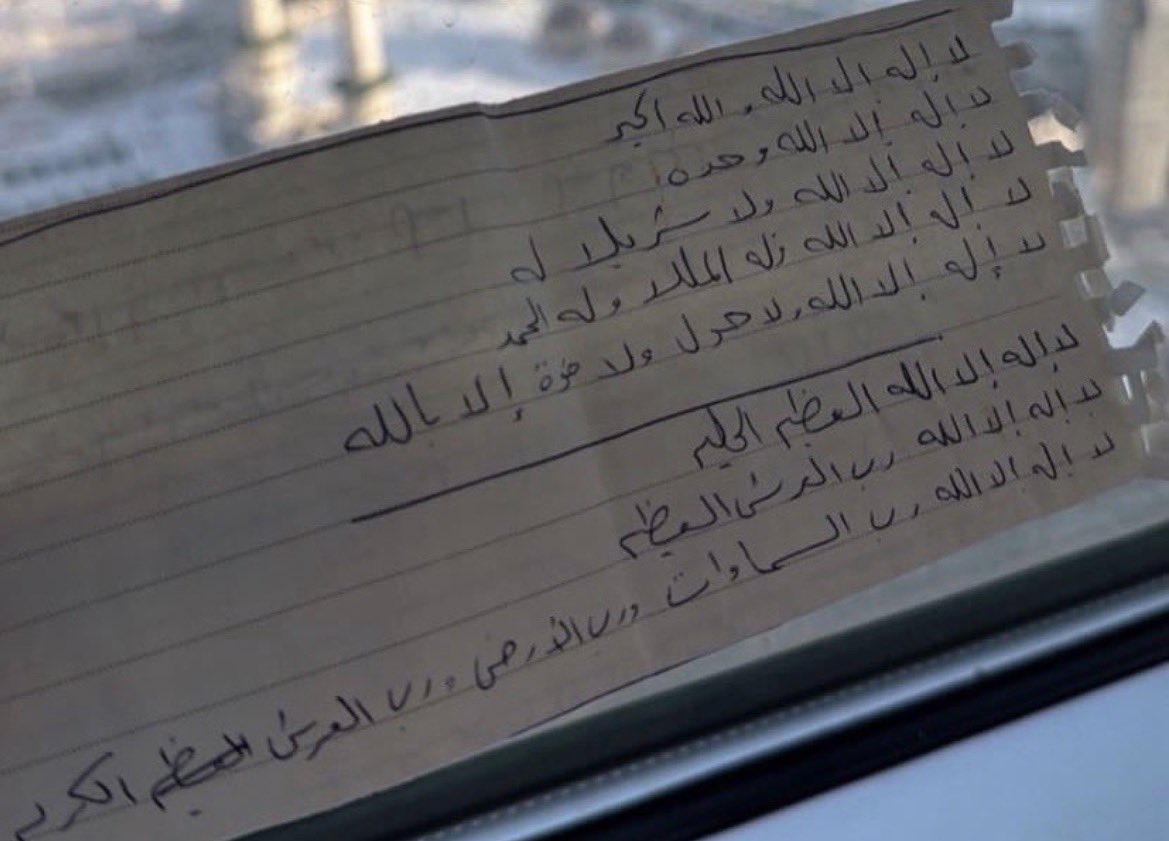 لا إله إلا الله، الله اكبر
لا إله إلا الله وحده
لا إله إلا الله ولا شريك له
لا إله إلا الله له الملك وله الحمد
لا إله إلا الله ولا حول ولا قوة إلا بالله
لا إله إلا الله العظيم الحليم
لا إله إلا الله رب العرش العظيم
لا إله إلا الله رب السماوات ورب الأرض ورب العرش الكريم